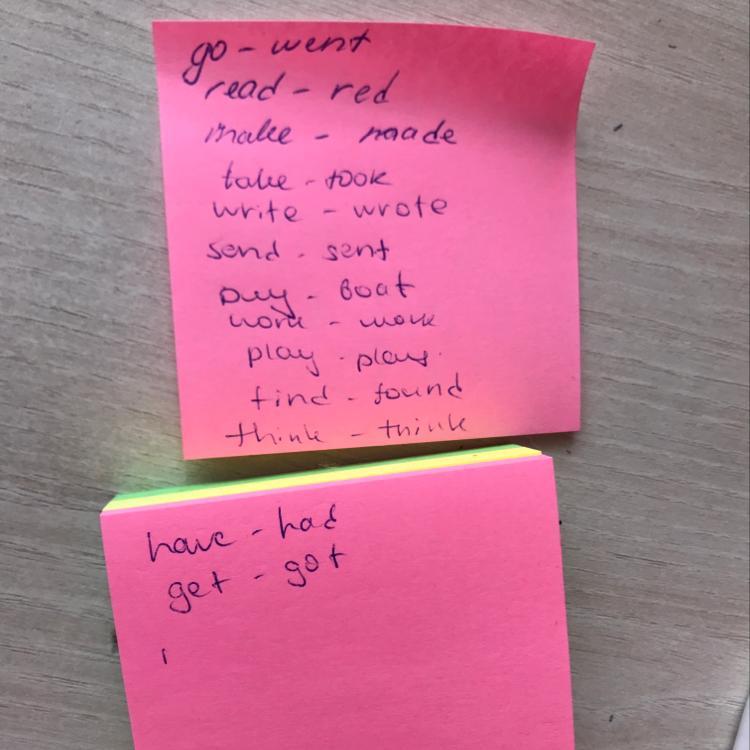 go - went
read - red
make - made
take - took
write - wrote
send - sent
buy - boat
work - work
play - plays
find - found
think - think
have - had
get - got